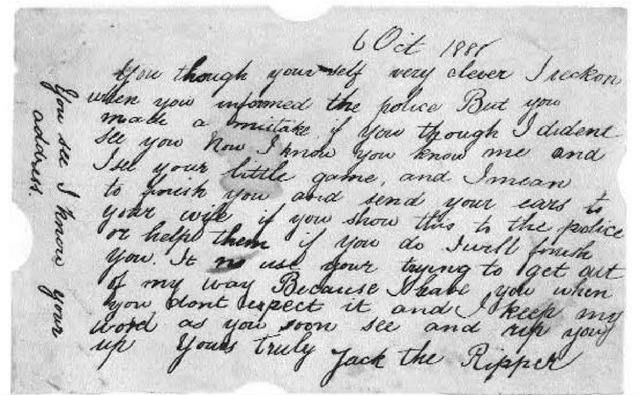 6 Oct 1888
You though your-self very clever I reckon
when you informed the police But you
made a mistake if you though I dident
see you Now I know you know me and
I see your little game, and I mean
to finish you and send your ears to
your wife if you show this to the police
or help them if you do I will finish
you. It no use your trying to get out
of my way Because I have you when
you dont expect it and I keep my
word as you soon see and rip you
up Yours truly Jack the Ripper
You see I know your
address.